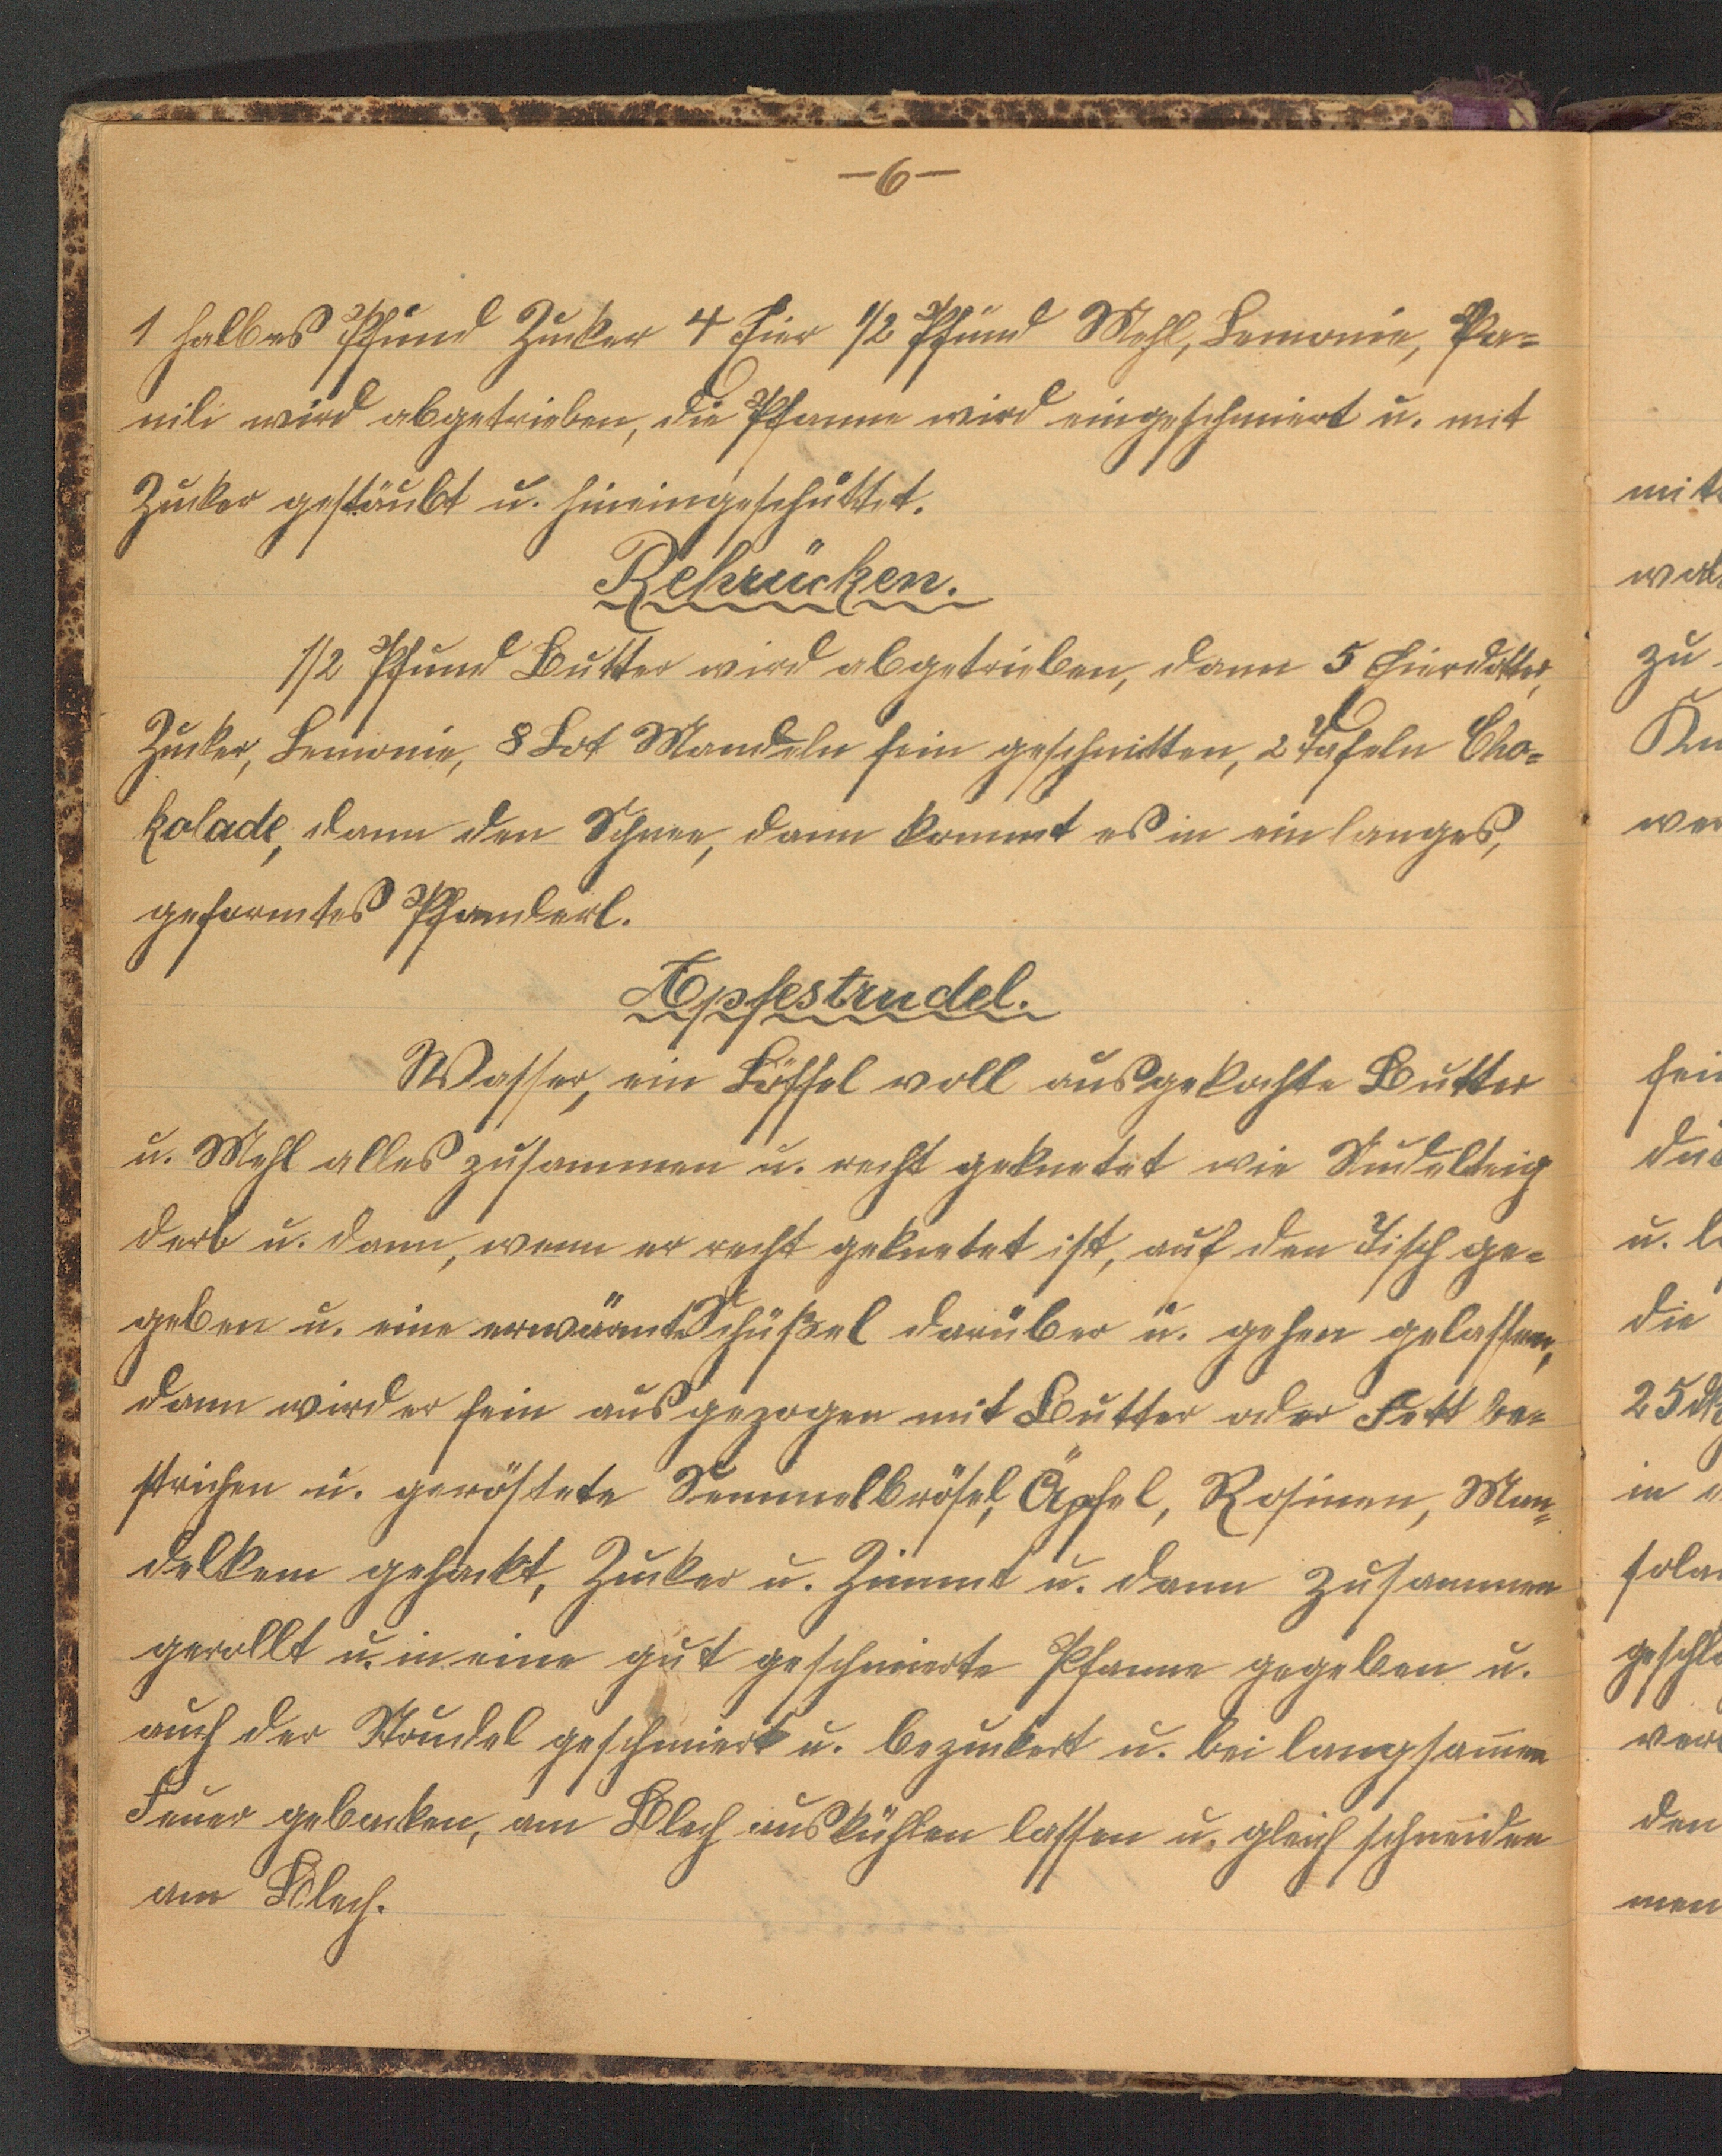 -6-
1 halbes Pfund Zucker 4 Eier 1/2 Pfund Mehl, Lemonie, Va=
nili wird abgetrieben, die Pfanne wird eingeschmiert u. mit
Zucker gestäubt u. hineingeschüttet.
Rehrücken.
1/2 Pfund Butter wird abgetrieben, dann 5 Eierdotter,
Zucker, Lemonie, 8 Lot Mandeln fein geschnitten, 2 Tafeln Cho=
kolade, dann den Schnee, dann kommt es in ein langes,
geformtes Pfanderl.
Apfestrudel.
Wasser, ein Löffel voll ausgekochte Butter
u. Mehl alles zusammen u. recht geknetet wie Nudelteig
derb u. dann, wenn er recht geknetet ist, auf den Tisch ge=
geben u. eine erwärmte Schüßel darüber u. gehen gelassen,
dann wird er fein ausgezogen mit Butter oder Fett be=
strichen u. geröstete Semmelbrösel, Äpfel, Rosinen, Man=
delkern gehackt, Zucker u. Zimmt u. dann zusammen
gerollt u. in eine gut geschmierte Pfanne gegeben u.
auch der Strudel geschmiert u. bezuckert u. bei langsamen
Feuer gebacken, am Blech auskühlen lassen u. gleich schneiden
am Blech.
mit
zu
wer
fein
u.
die
25 dk
in
den
men